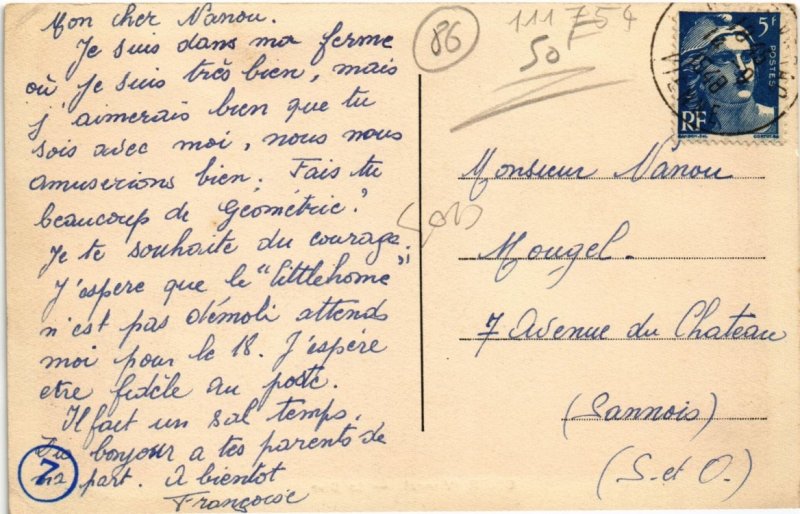 Mon cher Nanou.
Je suis dans ma ferme
où je suis très bien, mais
j'aimerais bien que tu
sois avec moi, nous nous
amuserions bien. Fais tu
beaucoup de Géométrie?
Je te souhaite du courage.
J'espère que le "littlehome"
n'est pas démoli attends
moi pour le 18. J'espère
etre fidèle au poste.
Il fait un sal temps.
Dis bonjour a tes parents de
ma part. A bientot
Françoise
7
86
111 754
50
5F
POSTES
RF
Monsieur Nanou
Mougel.
7 Avenue du Chateau
(Sannois)
(S. et O.)